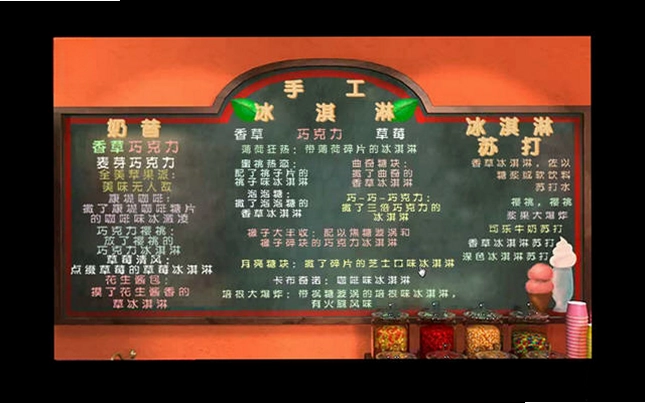 手 工
冰 淇 淋
香草 巧克力 草莓
薄荷狂热：带薄荷碎片的冰淇淋
蜜桃热恋：
配了桃子片的
桃子味冰淇淋
曲奇糖块：
撒了曲奇的
香草冰淇淋
泡泡糖：
撒了泡泡糖的
香草冰淇淋
巧-巧-巧克力：
撒了三倍巧克力的
冰淇淋
猴子大丰收：配以焦糖漩涡和
猴子碎块的巧克力冰淇淋
月亮糖块：撒了碎片的芝士口味冰淇淋
卡布奇诺：咖啡味冰淇淋
培根大爆炸：带枫糖漩涡的培根味冰淇淋，
有火腿风味
奶昔
香草巧克力
麦芽巧克力
全美苹果派：
美味无人敌
康提咖啡：
撒了康提咖啡糖片
的咖啡味冰激凌
巧克力樱桃：
放了樱桃的
巧克力冰淇淋
草莓清风：
点缀草莓的草莓冰淇淋
花生酱包：
摸了花生酱香的
草冰淇淋
冰淇淋
苏打
香草冰淇淋，佐以
糖浆或软饮料
苏打水
樱桃，樱桃
浆果大爆炸
可乐牛奶苏打
香草冰淇淋苏打
深色冰淇淋苏打